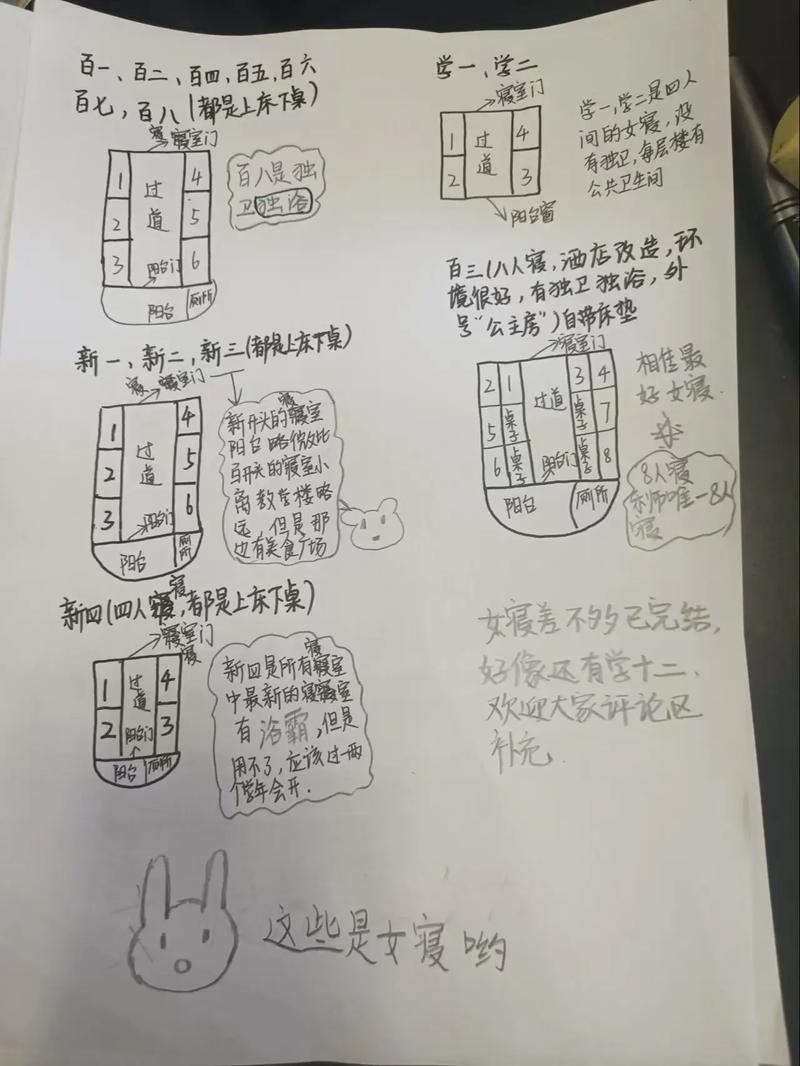 百一、百二、百四、百五、百六
百七，百八（都是上床下桌）
寝室门
1
2
3
过道
4
5
6
阳台门
阳台
厕所
百八是独
卫独浴
新一、新二，新三（都是上床下桌）
寝室门
1
2
3
过道
4
5
6
阳台门
阳台
厕所
新开头的寝室
阳台略微比
百开头的寝室小
离教学楼略
远，但是那
边有美食广场
新四（四人寝，都是上床下桌）
寝室门
1
2
过道
4
3
阳台门
阳台
厕所
新四是所有寝室
中最新的寝室
有浴霸，但是
用不了，应该过一两
个学年会开.
学一、学二
寝室门
1
2
过道
4
3
阳台窗
学一，学二是四人
间的女寝，没
有独卫，每层楼有
公共卫生间
百三（八人寝，酒店改造，环
境很好，有独卫独浴，外
号“公主房”）自带床垫
寝室门
2 1
5 桌子
6 桌子
过道
3 4
桌子 7
桌子 8
阳台门
阳台
厕所
相佳最
好女寝.
8人寝
东师唯一8人
寝
女寝差不多已完结，
好像还有学十二，
欢迎大家评论区
补充.
这些是女寝哟